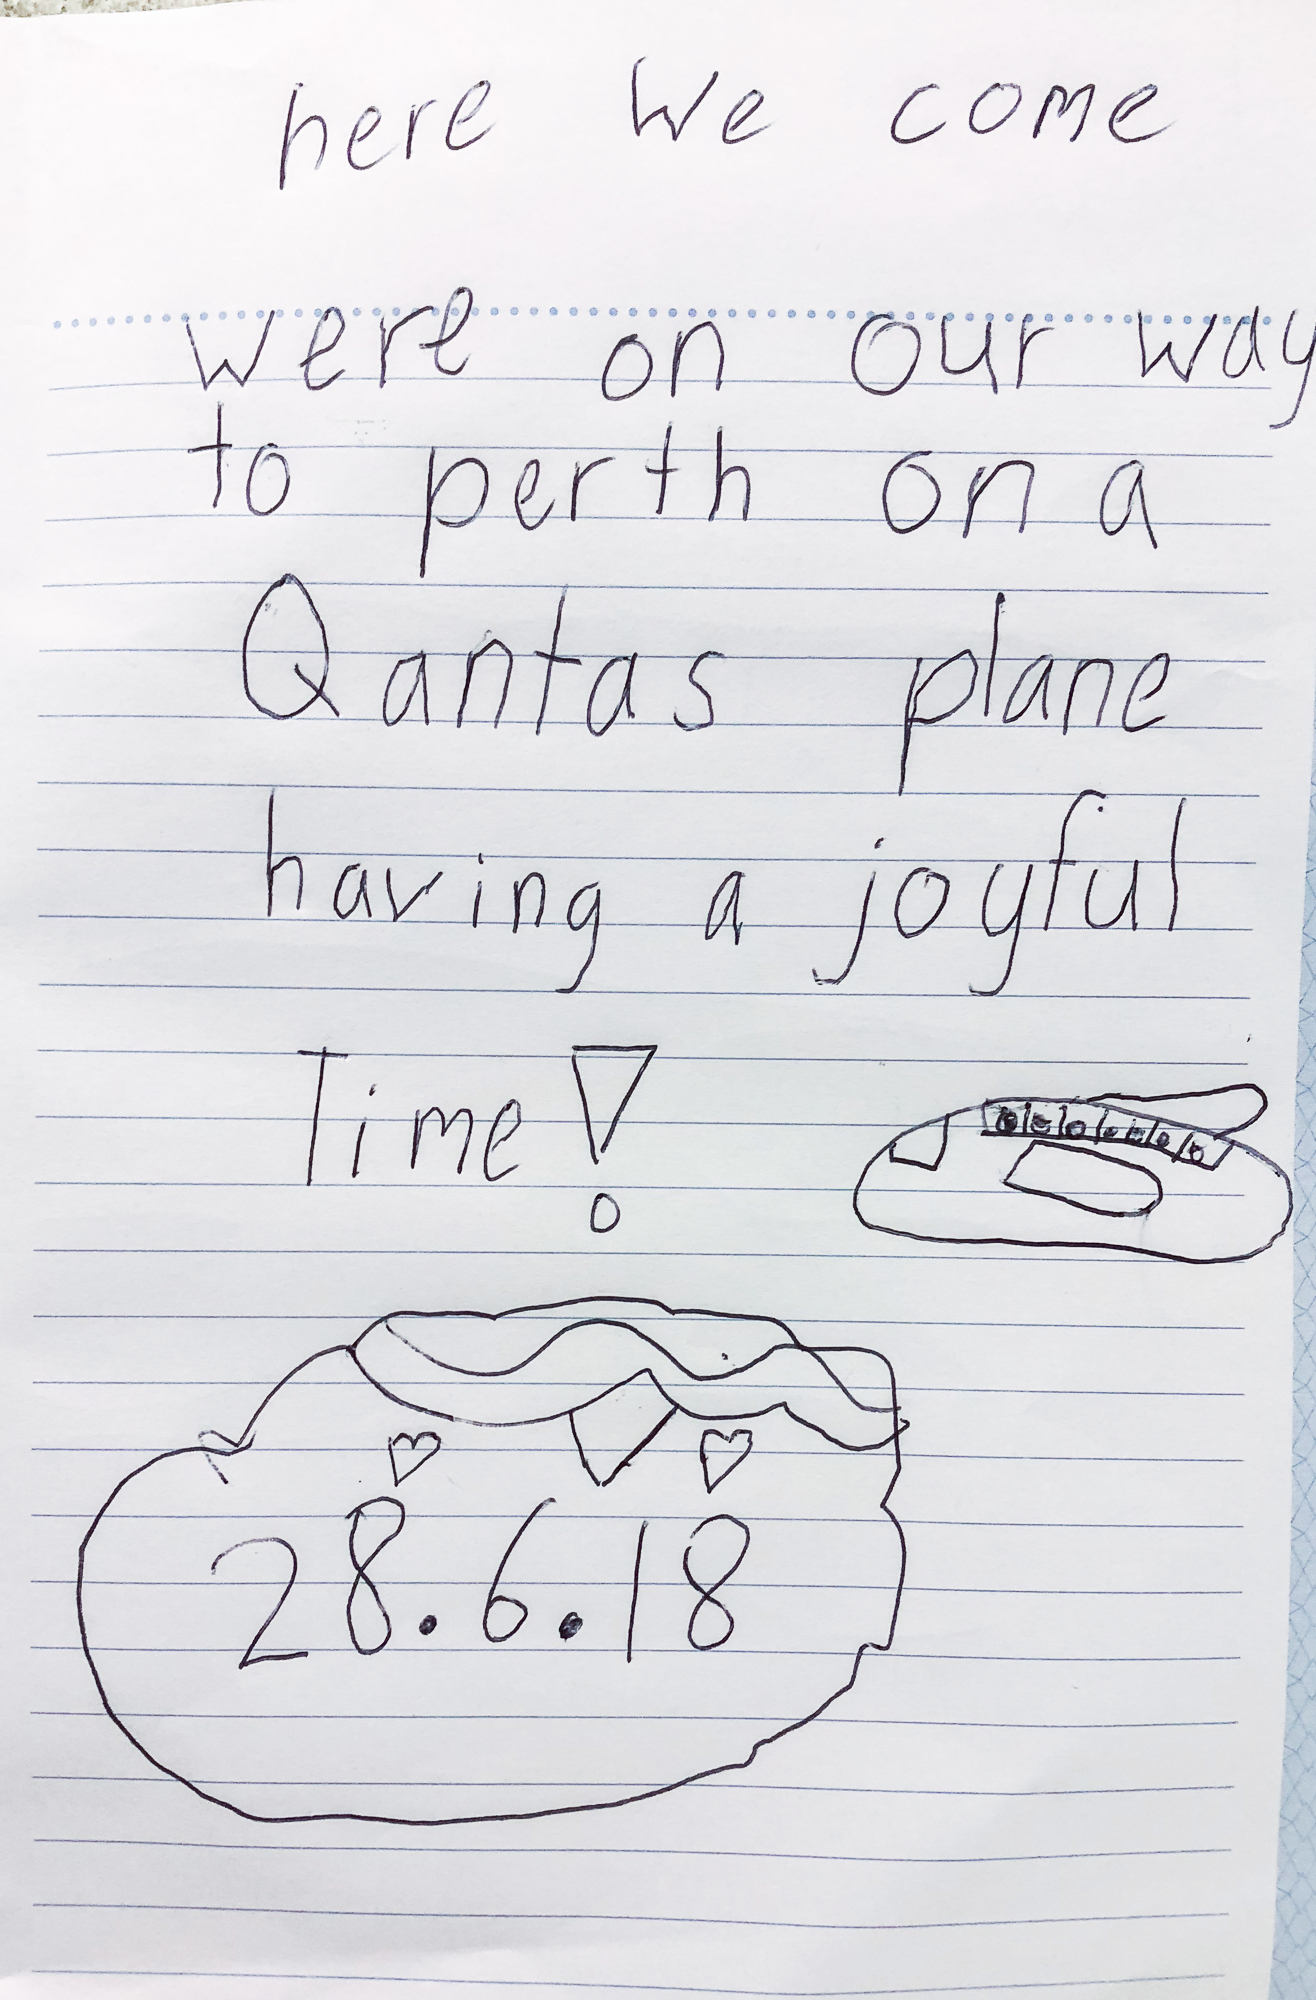 here We come
were on our way
to perth on a
Qantas plane
having a joyful
Time!
28.6.18